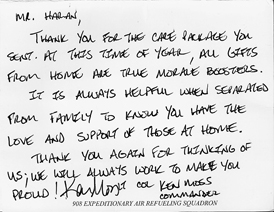 MR. HARAN,
THANK YOU FOR THE CARE PACKAGE YOU
SENT. AT THIS TIME OF YEAR, ALL GIFTS
FROM HOME ARE TRUE MORALE BOOSTERS.
IT IS ALWAYS HELPFUL WHEN SEPARATED
FROM FAMILY TO KNOW YOU HAVE THE
LOVE AND SUPPORT OF THOSE AT HOME.
THANK YOU AGAIN FOR THINKING OF
US; WE WILL ALWAYS WORK TO MAKE YOU
PROUD! COL KEN MOSS
COMMANDER
908 EXPEDITIONARY AIR REFUELING SQUADRON